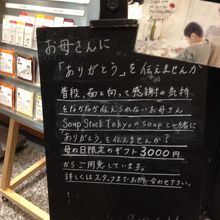 お母さんに
「ありがとう」を伝えませんか
普段、面と向って感謝の気持
をなかなか伝えられないお母さん
Soup Stock Tokyoのsoupと一緒に
"ありがとう"を伝えませんか?
母の日限定のギフト3000円
からご用意しています。
詳しくはスタッフまでお問い合わせ下さい。